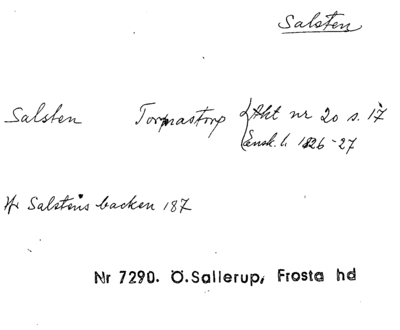 Salsten
Salsten Tormastorp Akt nr 20 s. 17
Ensk. l. 1826-27
Jfr Salstens backen 187
Nr 7290. Ö.Sallerup, Frosta hd